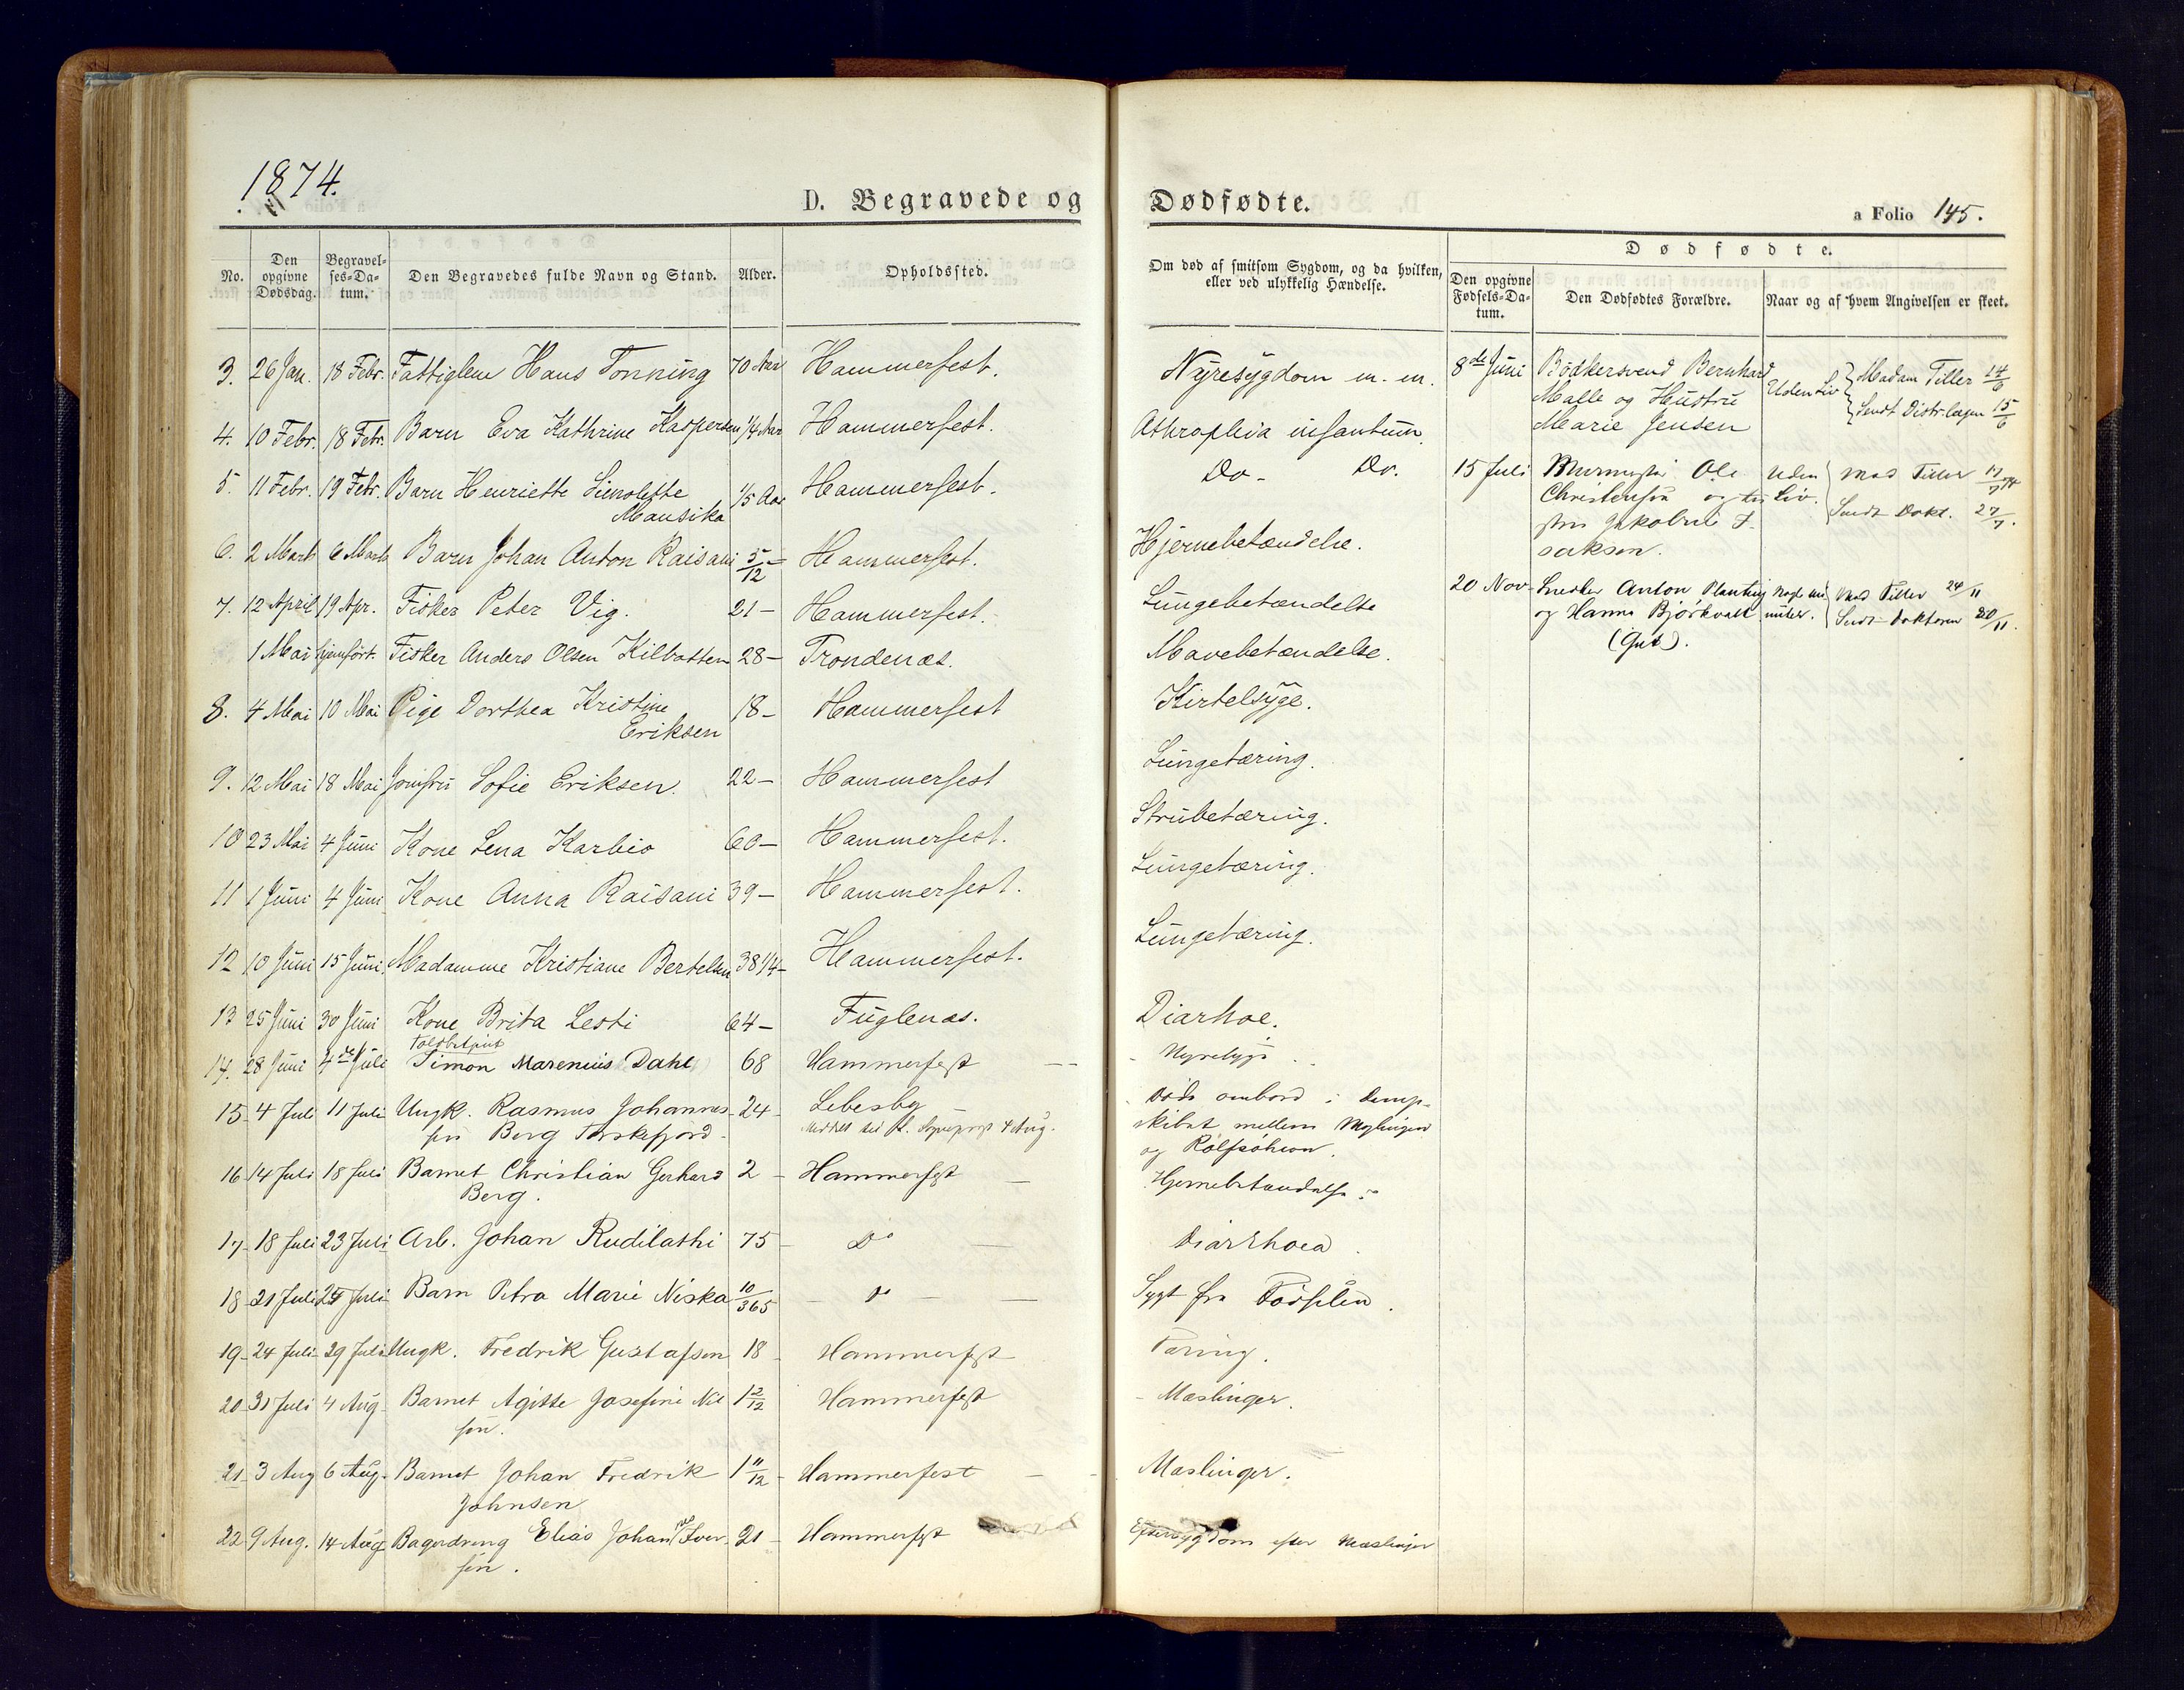 1874.
D. Begravede og
No.
Den opgivne Dødsdag.
Begravelses-Datum.
Den Begravedes fulde Navn og Stand.
Alder.
Opholdssted.
3. 26 Jan. 18 Febr. Fattiglem Hans Tonning 70 Aar Hammerfest.
4. 10 Febr. 18 Febr. Barn Eva Kathrine Kaspersen 1/4 Aar Hammerfest.
5. 11 Febr. 19 Febr. Barn Henriette Simolette 1/5 Aar Hammerfest.
Mansika
6. 2 Marts 6 Marts Barn Johan Anton Raisani 5/12 – Hammerfest.
7. 12 April 19 Apr. Fisker Peter Vig. 21 – Hammerfest.
1 Mai hjemført. Fisker Anders Olsen Kilbotten 28 – Trondenæs.
8. 4 Mai 10 Mai Pige Dorthea Kristine 18 – Hammerfest
Eriksen
9. 12 Mai 18 Mai Jomfru Sofie Eriksen. 22 – Hammerfest
10 23 Mai 4 Juni Kone Lena Karbio 60 – Hammerfest.
11 1 Juni 4 Juni Kone Anna Raisani 39 – Hammerfest.
12 10 Juni 15 Juni. Madamme Kristiane Bertelsen 38 1/4 – Hammerfest.
13 25 Juni 30 Juni Kone Brita Lesti 64 – Fuglenæs.
Toldbetjent
14. 28 Juni 4de Juli Simon Marenius Dahl 68 Hammerfest
15 4 Juli 11 Juli Ungk. Rasmus Johannes- 24 – Lebesby
sen Berg Torskefjord. 4 Aug.
16 14 Juli 18 Juli Barnet Christian Gerhard 2 – Hammerfest
Berg.
17 18 Juli 23 Juli Arb. Johan Rudilathi 75 – Do
18 21 Juli 25 Juli Barn Petra Marie Niska 10/365 – Do –
19 24 Juli 29 Juli Ungk. Fredrik Gustafsen 18 – Hammerfest
20 31 Juli 4 Aug Barnet Agitte Josefine Nil 1 2/12 Hammerfest
sen.
21 3 Aug 6 Aug. Barnet Johan Fredrik 1 11/12 – Hammerfest
Johnsen
22 9 Aug. 14 Aug Bagerdreng Elias Johan Iver- 21 – Hammerfest
sen.
Dødfødte.
a Folio 145.
Om død af smitsom Sygdom, og da hvilken, eller ved ulykkelig Hændelse.
Dødfødte.
Den opgivne Fødsels-Datum.
Den Dødfødtes Forældre.
Naar og af hvem Angivelsen er skeet.
Nyresygdom m. m. 8de Juni Bødkersvend Bernhard Uden Liv Madam Tiller 14/6
Malle og Hustru Sendt Distr.lægen 15/6
Marie Jensen
Athrophia infantum.
Do – Do. 15 Juli Ole Uden Mad Tiller 17/7
Christensen og Liv. Sendt Dokt. 27/7.
Jakobine I-
saksen.
Hjernebetændelse.
Lungebetændelse 20 Nov. Snedker Anton Planting Mad Tiller 24/11
og Hanna Bjørkvatt Sendt Doktoren 30/11.
Mavebetændelse.
Kirtelsyge.
Lungetæring.
Strubetæring.
Lungetæring.
Lungetæring.
Diarhoe.
Nyresyge.
Døde ombord i Damp-
skibet mellem
og Rolfsøhavn.
Hjernebetændelse.
Diarrhoea.
Sygt fra Fødselen.
Tæring.
Mæslinger.
Mæslinger.
Eftersygdom efter Mæslinger